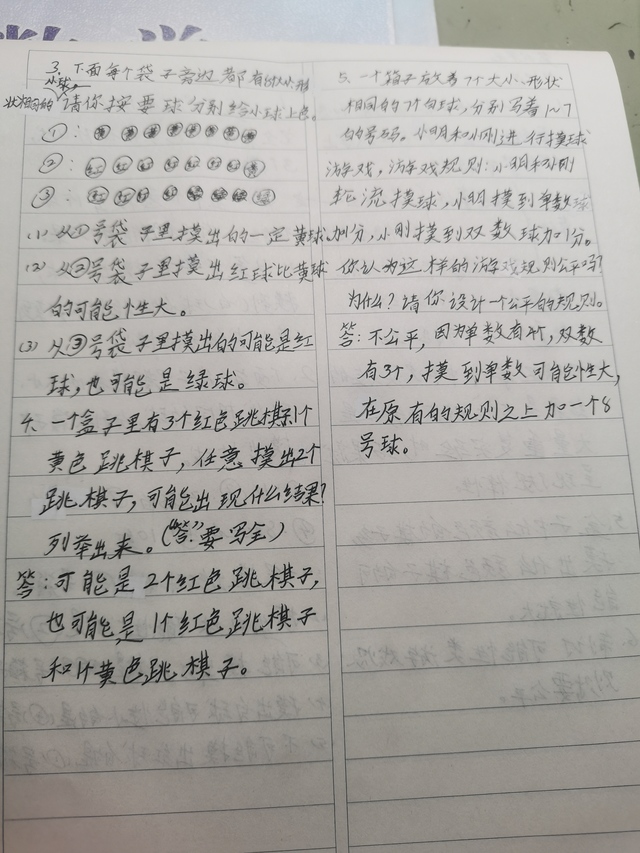 3. 下面每个袋子旁边都有8个大小、形
状相同的小球,请你按要求分别给小球上色。
①:
②:
③:
(1) 从①号袋子里摸出的一定黄球。
(2) 从②号袋子里摸出红球比黄球
的可能性大。
(3) 从③号袋子里摸出的可能是红
球,也可能是绿球。
4. 一个盒子里有3个红色跳棋子1个
黄色跳棋子,任意摸出2个
跳棋子,可能出现什么结果?
列举出来。(“答”要写全)
答:可能是2个红色跳棋子,
也可能是1个红色跳棋子
和1个黄色跳棋子。
5. 一个箱子放着7个大小、形状
相同的7个白球,分别写着1~7
的号码。小明和小刚进行摸球
游戏,游戏规则:小明和小刚
轮流摸球,小明摸到单数球
加1分,小刚摸到双数球加1分。
你认为这样的游戏规则公平吗?
为什么?请你设计一个公平的规则。
答:不公平,因为单数有4个,双数
有3个,摸到单数可能性大,
在原有的规则之上加一个8
号球。